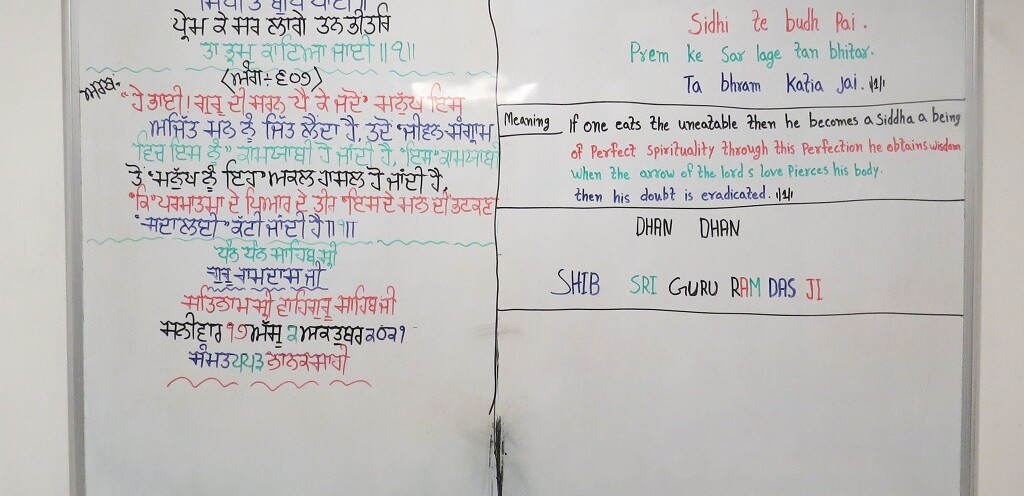 ਸਿਧੀ ਤੇ ਬੁਧਿ ਪਾਈ॥
ਪ੍ਰੇਮ ਕੇ ਸਰ ਲਾਗੇ ਤਨ ਭੀਤਰਿ
ਤਾ ਭ੍ਰਮੁ ਕਾਟਿਆ ਜਾਈ॥੧॥
(ਅੰਗ:-੬੦੭)
ਅਰਥ:- "ਹੇ ਭਾਈ! ਗੁਰੂ ਦੀ ਸ਼ਰਨ ਪੈ ਕੇ ਜਦੋਂ" ਮਨੁੱਖ ਇਸ
ਅਜਿੱਤ ਮਨ ਨੂੰ ਜਿੱਤ ਲੈਂਦਾ ਹੈ, ਤਦੋਂ "ਜੀਵਨ-ਸੰਗ੍ਰਾਮ
ਵਿਚ ਇਸ ਨੂੰ" ਕਾਮਯਾਬੀ ਹੋ ਜਾਂਦੀ ਹੈ, "ਇਸ" ਕਾਮਯਾਬੀ
ਤੋਂ "ਮਨੁੱਖ ਨੂੰ ਇਹ" ਅਕਲ ਹਾਸਲ ਹੋ ਜਾਂਦੀ ਹੈ,
"ਕਿ" ਪਰਮਾਤਮਾ ਦੇ ਪਿਆਰ ਦੇ ਤੀਰ "ਇਸ ਦੇ ਮਨ ਦੀ" ਭਟਕਣਾ
"ਸਦਾ ਲਈ" ਕੱਟੀ ਜਾਂਦੀ ਹੈ॥੧॥
ਧੰਨ ਧੰਨ ਸਾਹਿਬ ਸ੍ਰੀ
ਗੁਰੂ ਰਾਮਦਾਸ ਜੀ
ਸਤਿਨਾਮ ਸ੍ਰੀ ਵਾਹਿਗੁਰੂ ਸਾਹਿਬ ਜੀ
ਸ਼ਨੀਵਾਰ ੧੭ ਅੱਸੂ ੨ ਅਕਤੂਬਰ ੨੦੨੧
ਸੰਮਤ ੫੫੩ ਨਾਨਕਸ਼ਾਹੀ
Sidhi te budh Pai.
Prem ke Sar lage tan bhitar.
Ta bhram Katia jai. ||1||
Meaning If one eats the uneatable then he becomes a Siddha a being
of Perfect Spirituality through this Perfection he obtains wisdom
when the arrow of the lord's love Pierces his body.
then his doubt is eradicated. ||1||
DHAN DHAN
SHIB SRI GURU RAM DAS JI